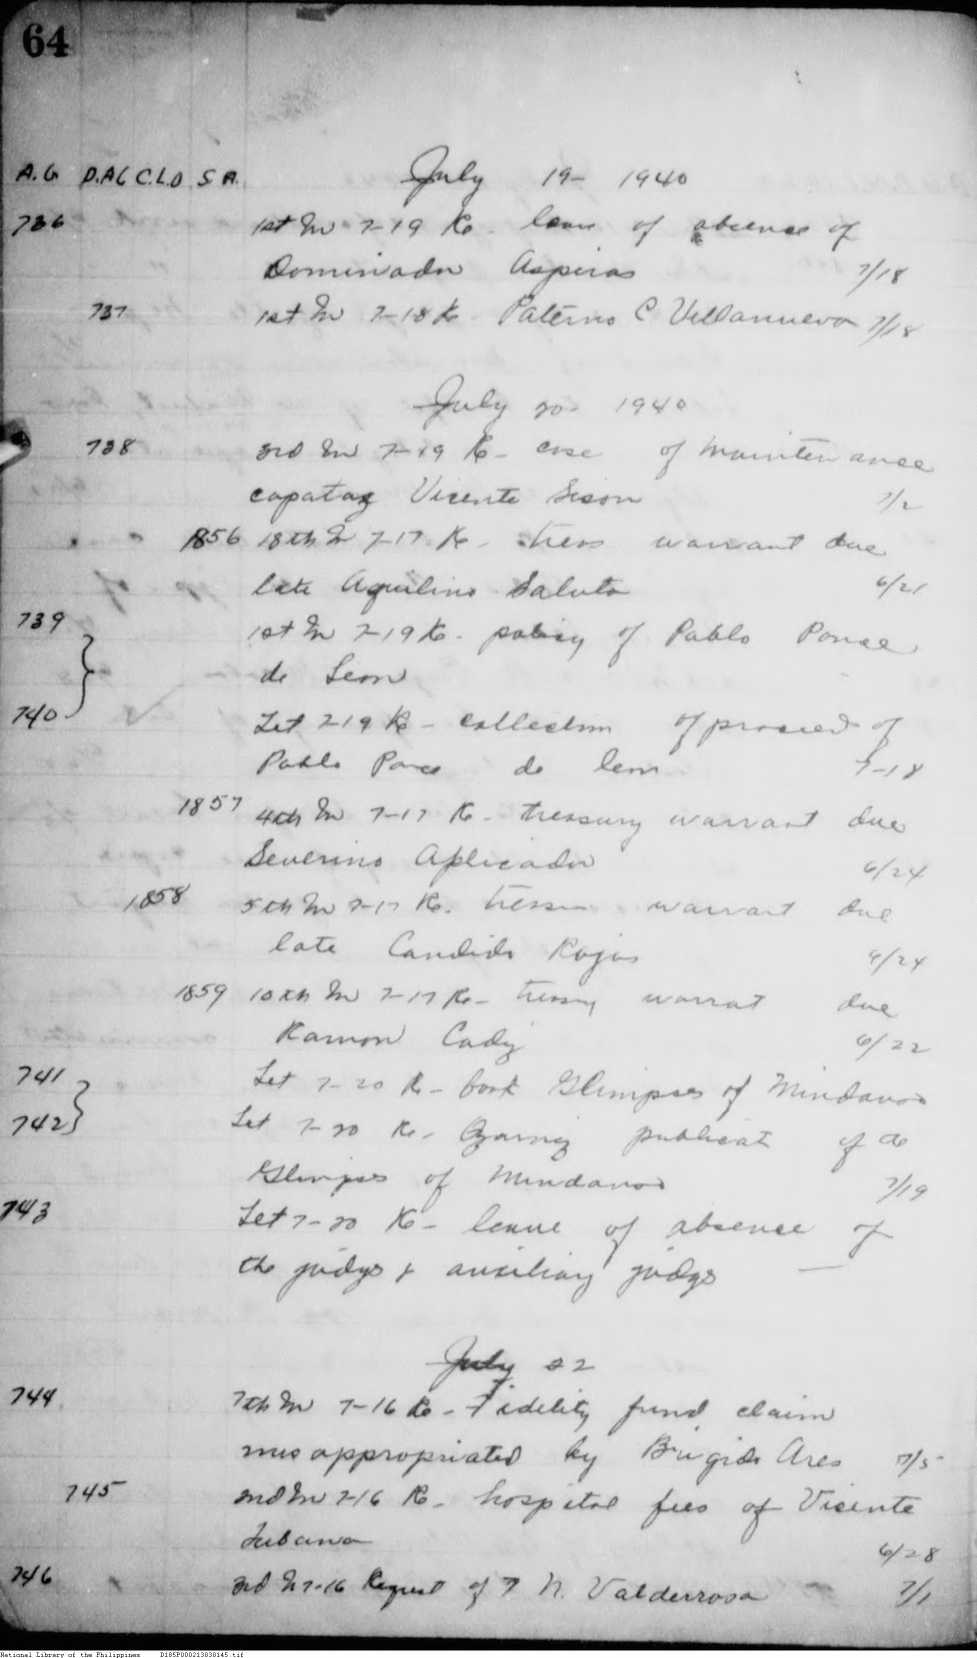 64
A.G D.AG C.L.O S A. July 19- 1940
736 1st In 7-19 Re- leave of absence of
Dominador Aspiras 7/18
737 1st In 7-18 Re- Paterno C Villanueva 7/18
July 20- 1940
738 3rd In 7-19 Re- case of maintenance
capataz Vicente Sison 7/2
1856 18th In 7-17 Re- treas warrant due
late Aquilino Saluta 6/21
739 1st In 7-19 Re- policy of Pablo Ponce
de Leon
740 Let 7-19 Re- collection of proceed of
Pablo Ponce de leon 7-18
1857 4th In 7-17 Re- treasury warrant due
Severino Aplicador 6/24
1858 5th In 7-17 Re. warrant due
late Candido Rojas 6/24
1859 10th In 7-17 Re- warrat due
Ramon Cadiz 6/22
741 Let 7-20 Re- book Glimpses of Mindanao
742 Let 7-20 Re- publicat of
Glimpses of Mindanao 7/19
743 Let 7-20 Re- leave of absence of
the judge & auxiliary judge —
July 22
744 7th In 7-16 Re- Fidelity fund claim
misappropriated by Brigido Ares 7/5
745 2nd In 7-16 Re- hospital fees of Vicente
6/28
746 3rd In 7-16 Request of T N. Valderrosa 7/1
National Library of the Philippines D185P000213838145.tif